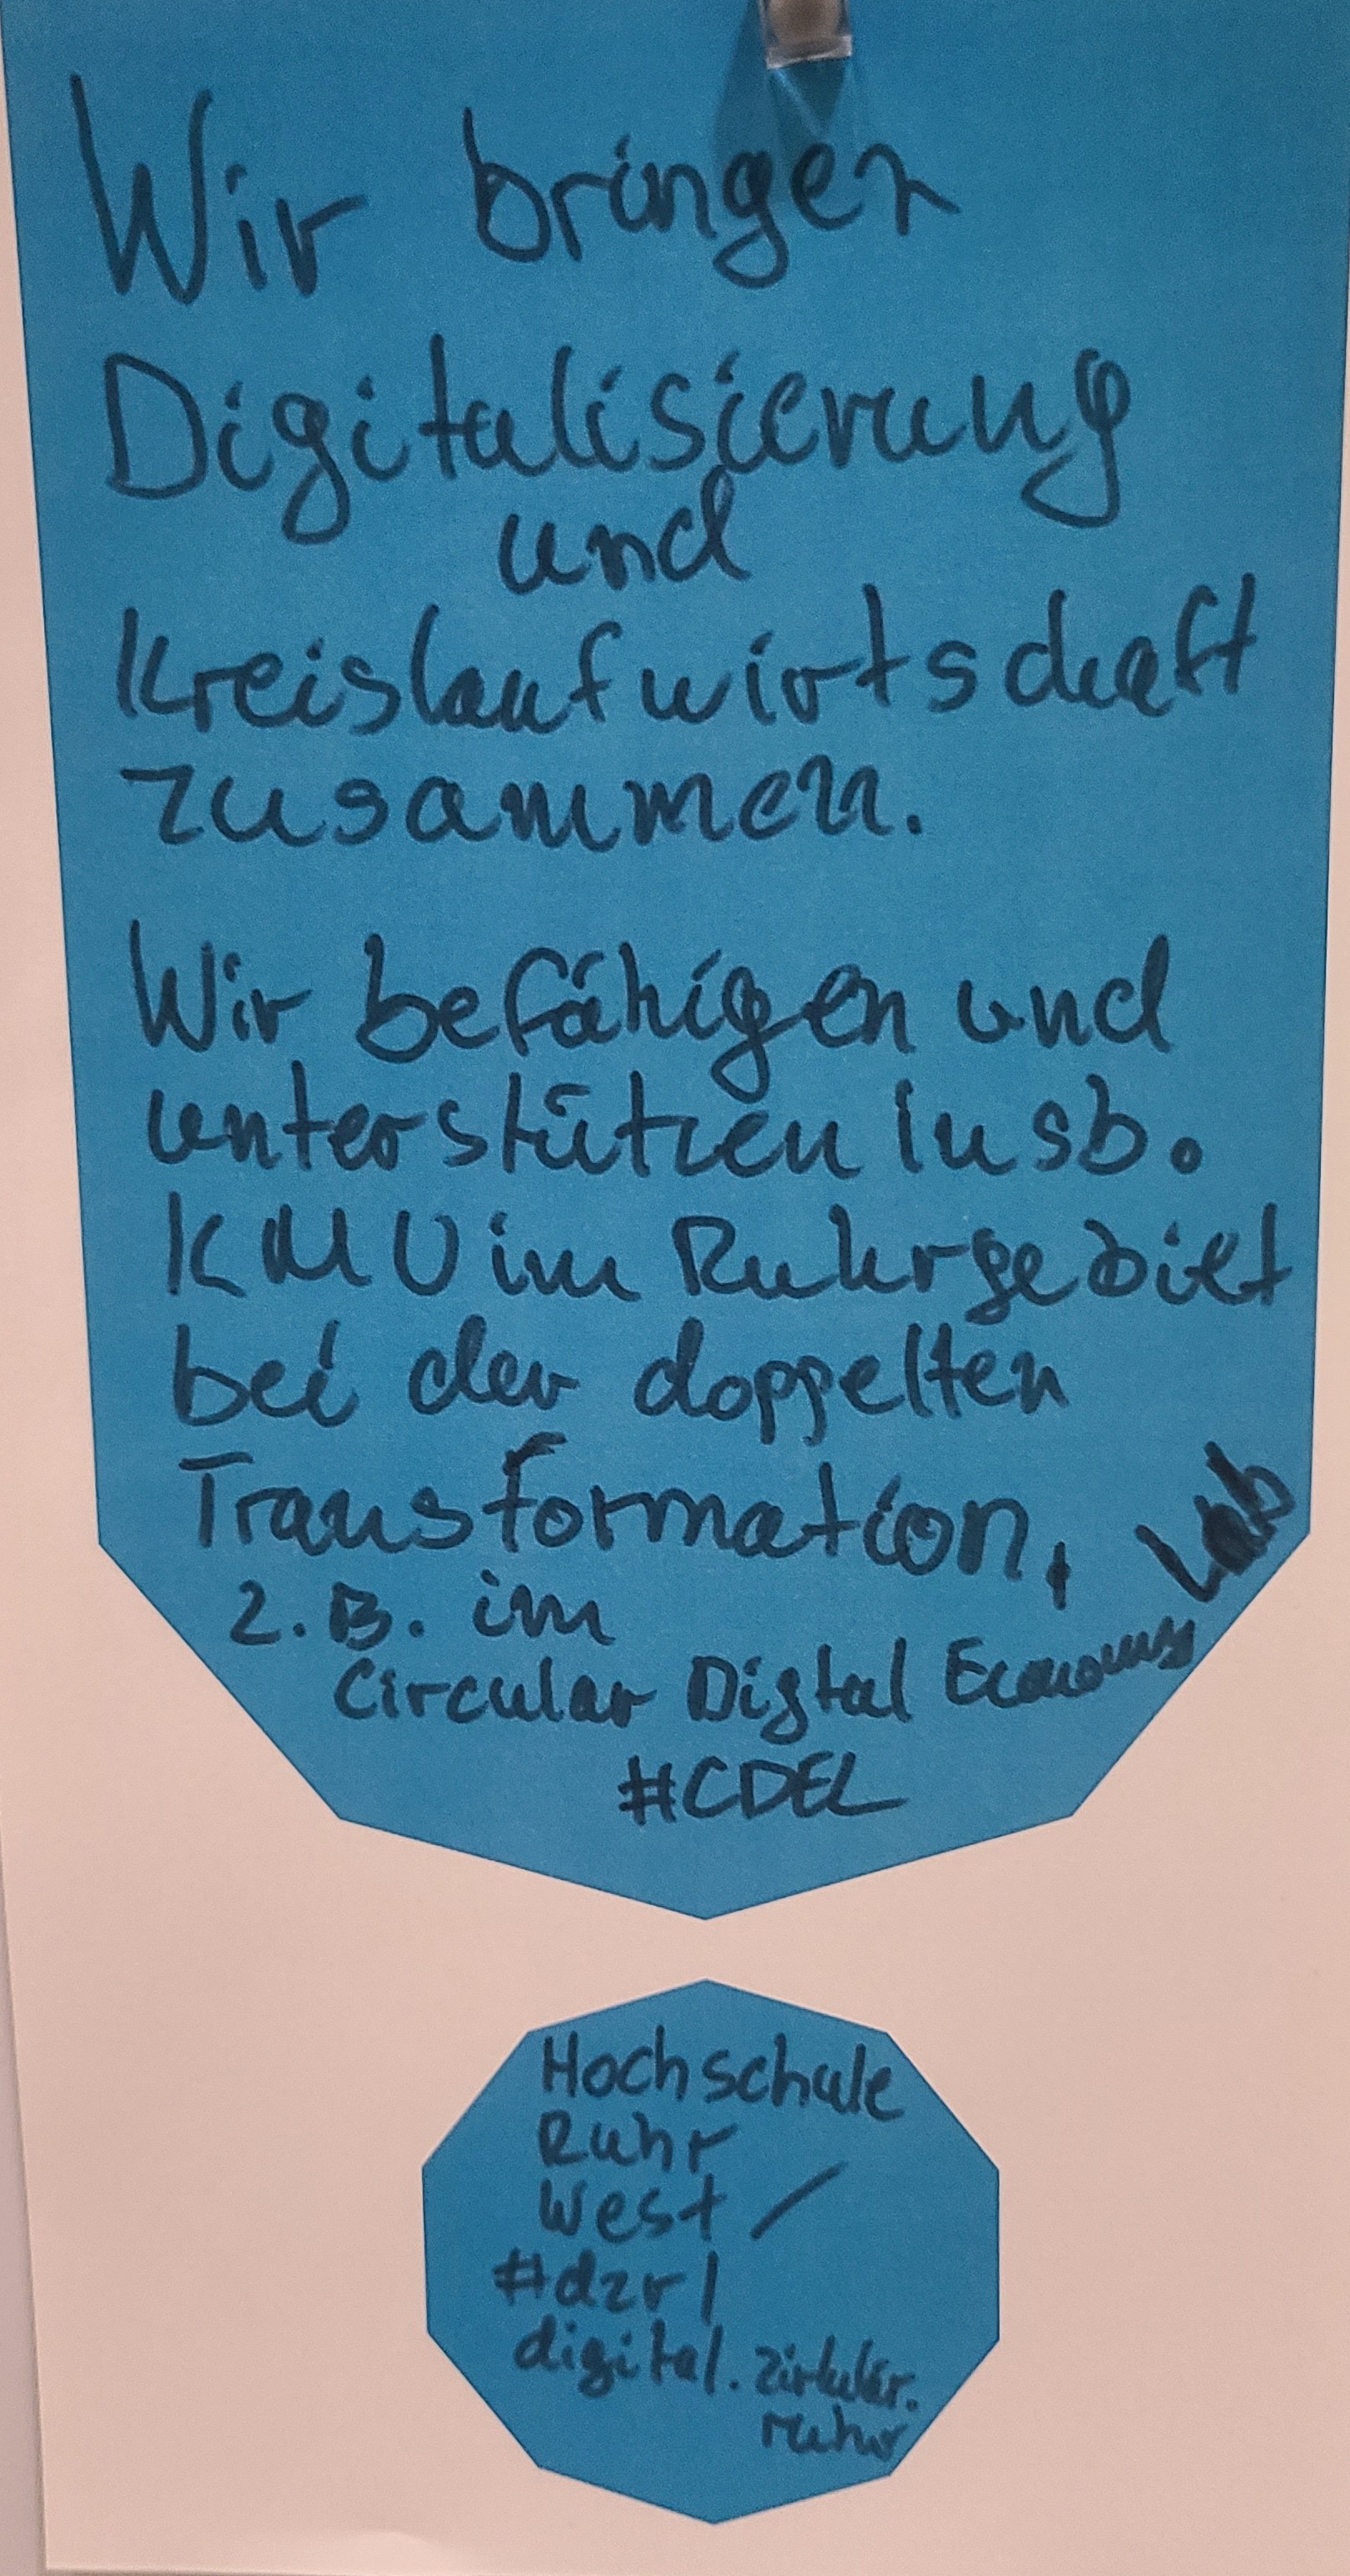 Wir bringen
Digitalisierung
und
Kreislaufwirtschaft
zusammen.
Wir befähigen und
unterstützen insb.
KMU im Ruhrgebiet
bei der doppelten
Transformation,
z.B. im
Circular Digital Economy Lab
#CDEL
Hochschule
Ruhr
West /
#dzr /
digital.zirkulär.
ruhr